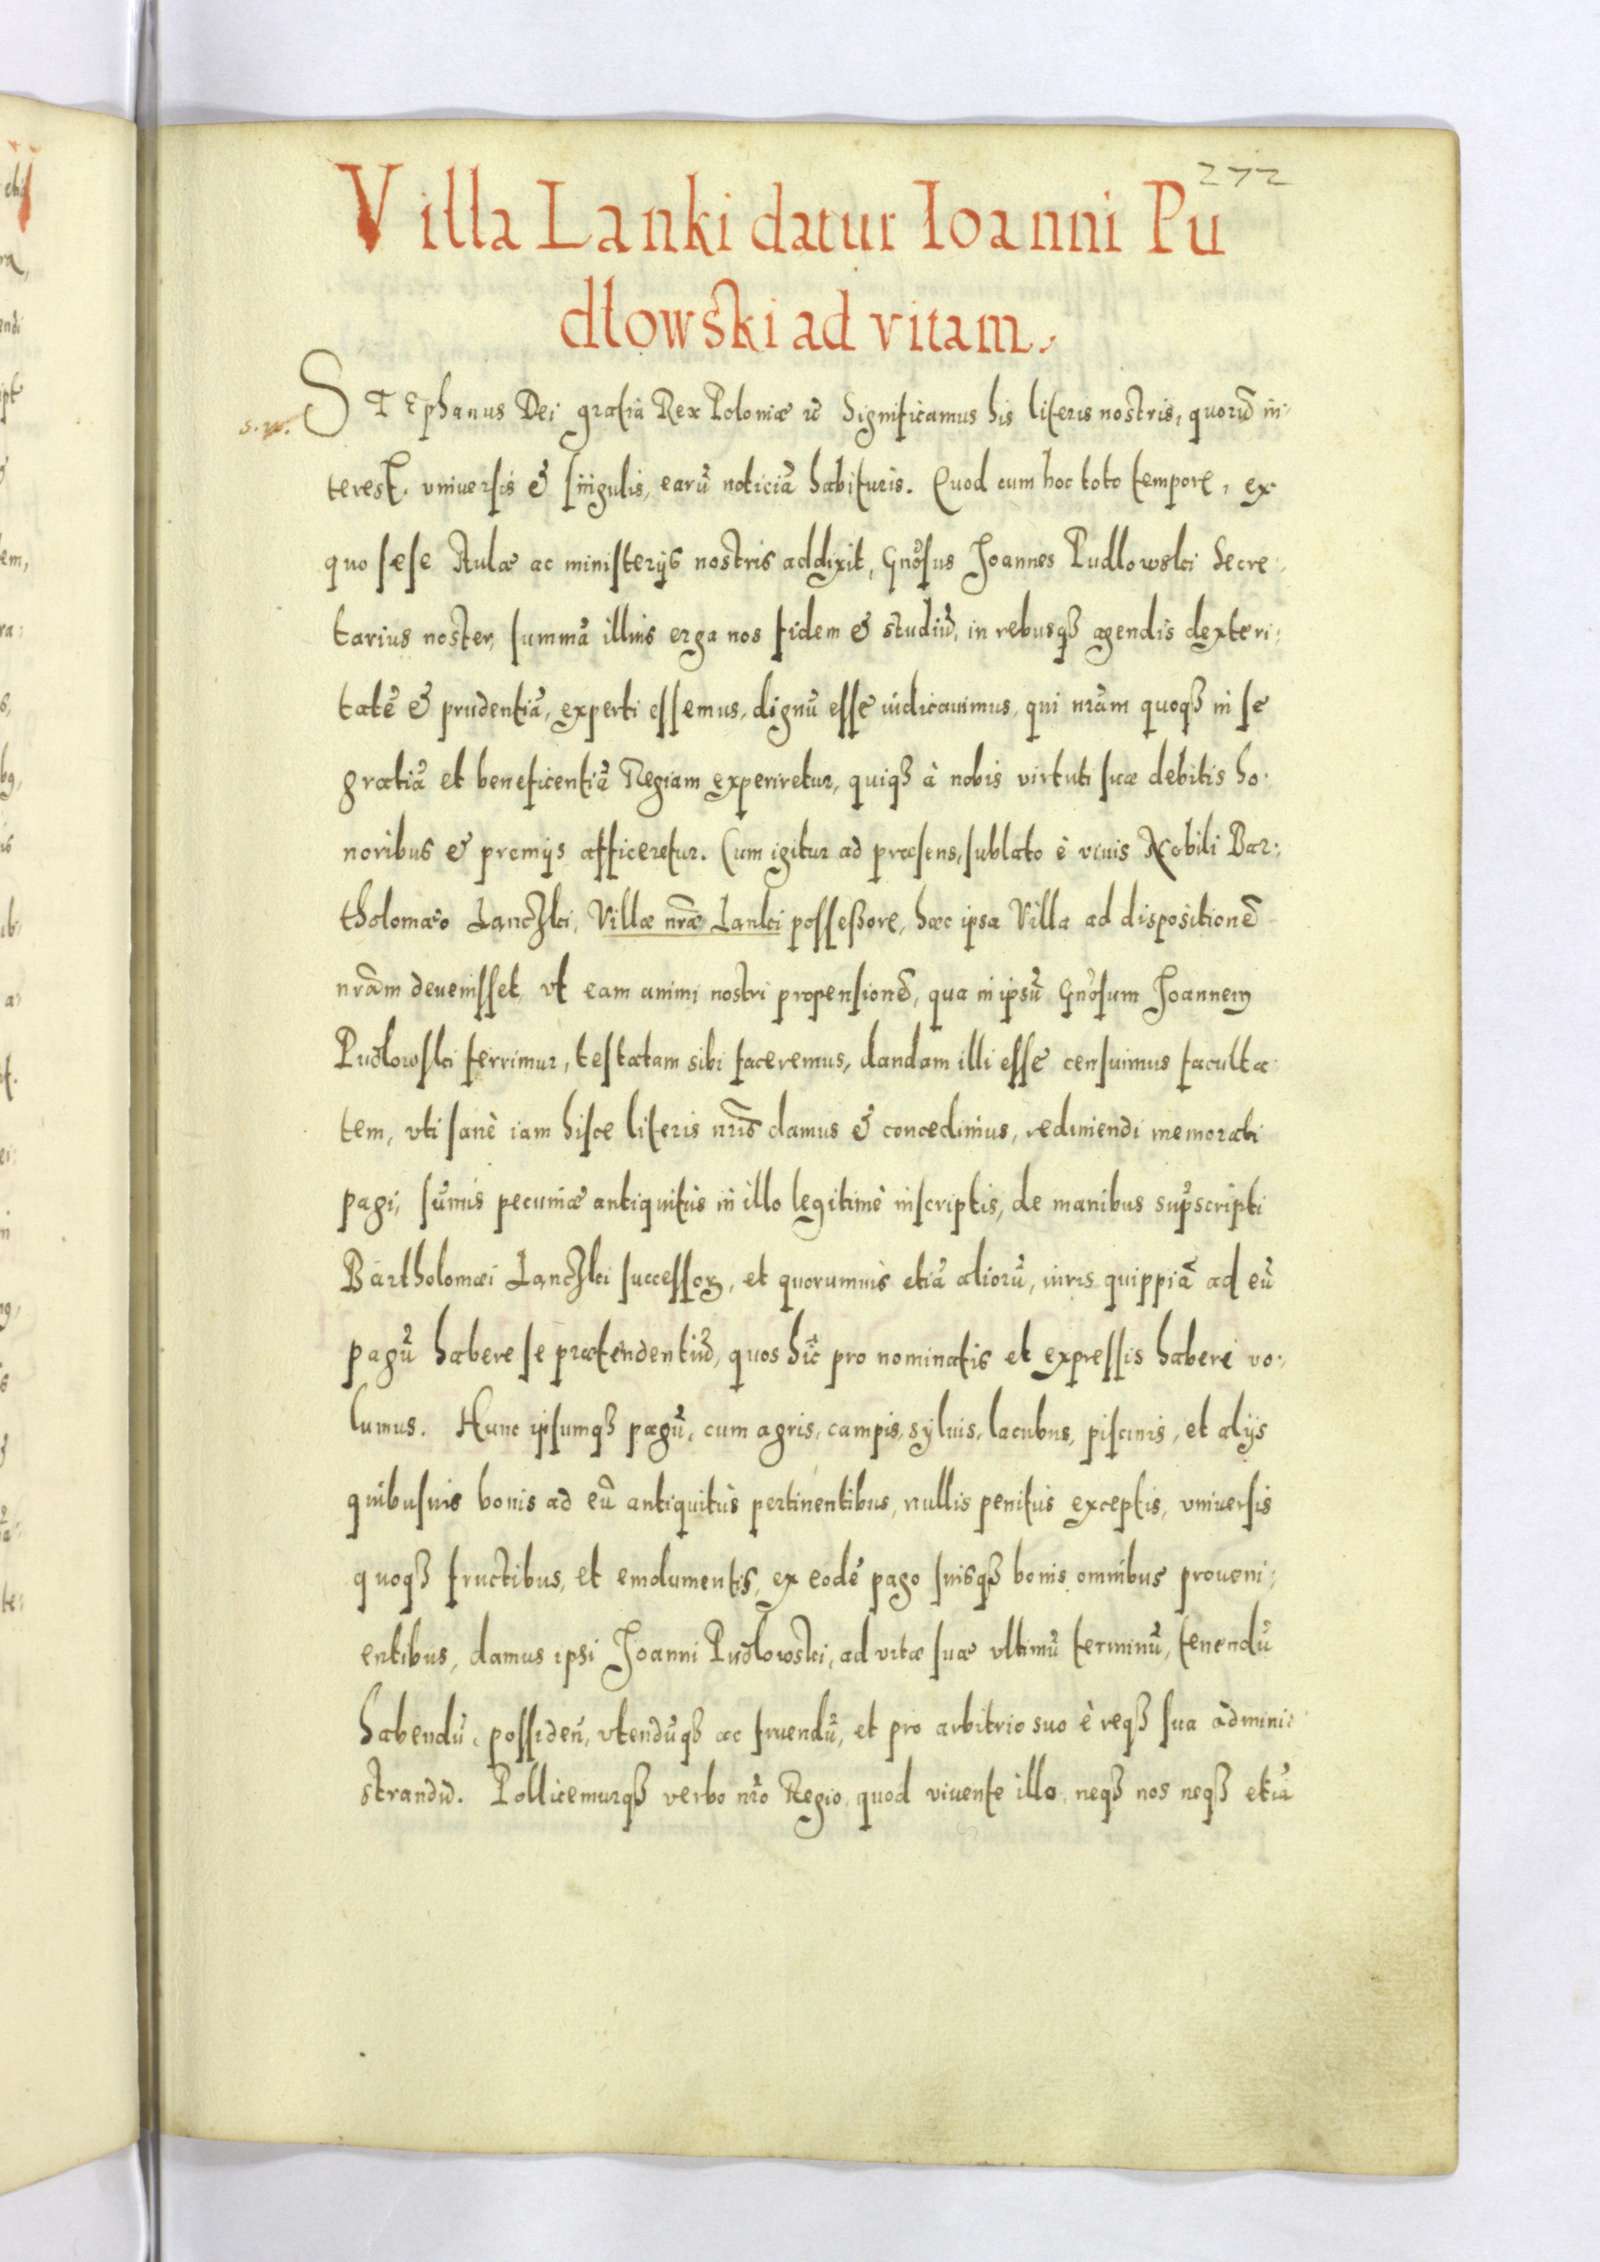 272
Villa Lanki datur Ioanni Pu
dłowski ad vitam.
STEphanus Dei gratia Rex Poloniæ &c Significamus his literis nostris, quorũ in-
terest. vniuersis & singulis, earũ noticiã habituris. Quod cum hoc toto tempore, ex
quo sese Aulæ ac ministerijs nostris addixit, Gnõsus Joannes Pudlowski Secre-
tarius noster, summã illius erga nos fidem & studiũ, in rebusqꝫ agendis dexteri-
tatẽ & prudentiã, experti essemus, dignũ esse iudicauimus, qui nrãm quoqꝫ in se
gratiã et beneficentiã Regiam experiretur, quiqꝫ à nobis virtuti suæ debitis ho-
noribus & premijs afficeretur. Cum igitur ad præsens, sublato è viuis Nobili Bar-
tholomæo Lanczki, Villæ nræ̃ Lanki possessore, hæc ipsa Villa ad dispositionẽ
nrãm deuenisset, vt eam animi nostri propensionẽ, qua in ipsũ Gnõsum Joannem
Pudlowski ferrimur, testatam sibi faceremus, dandam illi esse censuimus faculta-
tem, vti sanè iam hisce literis nrĩs damus & concedimus, redimendi memorati
pagi, sũmis pecuniæ antiquitùs in illo legitimè inscriptis, de manibus sup̃scripti
Bartholomæi Lanczki successoꝝ, et quorumuis etiã aliorũ, iuris quippiã ad eũ
pagũ habere se prætendentiũ, quos hîc pro nominatis et expressis haberi vo-
lumus. Hunc ipsumqꝫ pagũ, cum agris, campis, syluis, lacubus, piscinis, et alijs
quibusuis bonis ad eũ antiquitùs pertinentibus, nullis penitus exceptis, vniuersis
quoqꝫ fructibus, et emolumentis, ex eodẽ pago suisqꝫ bonis omnibus proueni-
entibus, damus ipsi Joanni Pudlowski, ad vitæ suæ vltimũ terminũ, tenendũ
habendũ, possideñ, vtendũqꝫ ac fruendũ, et pro arbitrio suo è reqꝫ sua admini-
strandũ. Pollicemurqꝫ verbo nrõ Regio, quod viuente illo, neqꝫ nos neqꝫ etiã